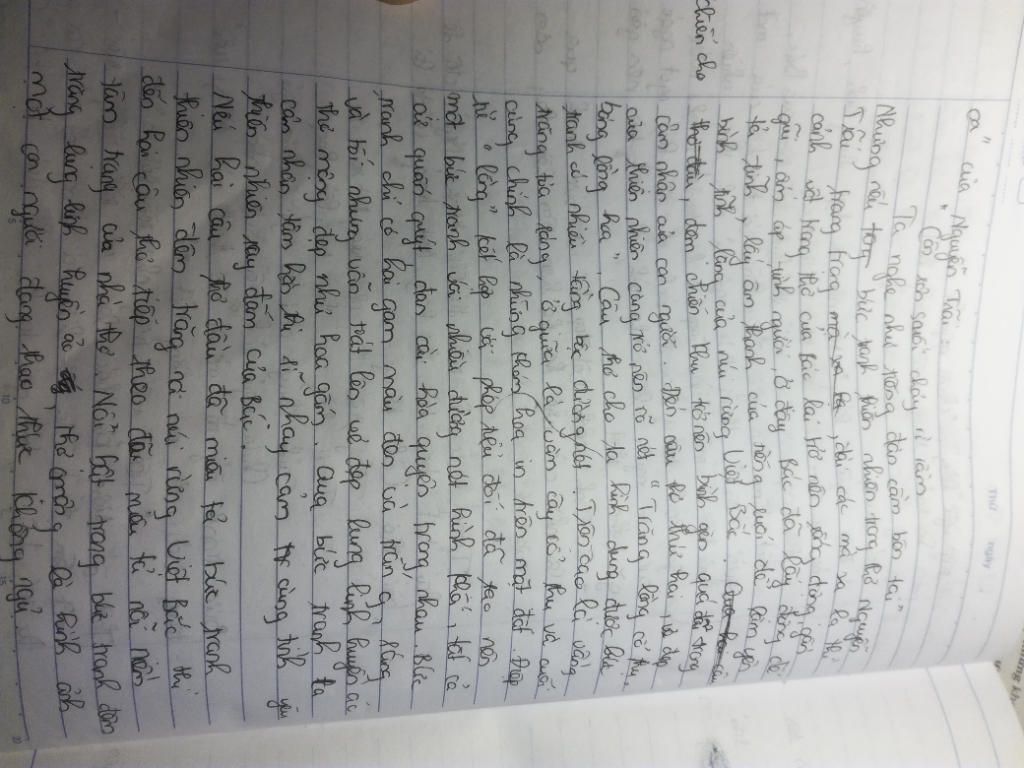 ca" của Nguyễn Trãi
"Côn sơn suối chảy rì rầm
Ta nghe như tiếng đàn cầm bên tai"
Nhưng nếu bức tranh thiên nhiên trong thơ Nguyễn
Trãi trang trọng, đài các mà xa lạ thì
cảnh vật trong thơ của Bác lại trở nên sống động, gần
gũi, ấm áp tình người, ở đây Bác đã lấy động để
tả tĩnh, lấy âm thanh của tiếng suối để làm yên
bình tĩnh lặng của núi rừng Việt Bắc
chiến cho, đêm chiến khu trở nên bình yên qua trong
cảm nhận của con người. Đến câu thơ thứ hai, vẻ đẹp
của thiên nhiên càng trở nên rõ nét "Trăng lồng cổ thụ
bóng lồng hoa", Câu thơ cho ta hình dung được bức
tranh có nhiều tầng bậc đường nét. Trên cao là vầng
trăng tỏa sáng, ở giữa là vòm cây cổ thụ và cuối
cùng chính là những thảm hoa in trên mặt đất. Điệp
từ "lồng" kết hợp với phép tiểu đối đã tạo nên
một bức tranh với nhiều đường nét hình khối, tất cả
cứ quấn quýt đan cài hòa quyện trong nhau. Bức
tranh chỉ có hai gam màu đen và trắng, sáng
và tối nhưng vẫn toát lên vẻ đẹp lung linh huyền ảo,
thơ mộng đẹp như hoa gấm. Qua bức tranh ta
cảm nhận tâm hồn thi sĩ nhạy cảm cùng tình yêu
thiên nhiên say đắm của Bác.
Nếu hai câu thơ đầu đã miêu tả bức tranh
thiên nhiên đêm trăng nơi núi rừng Việt Bắc thì
đến hai câu thơ tiếp theo đã miêu tả rõ nét
tâm trạng của nhà thơ. Nổi bật trong bức tranh đêm
trăng lung linh huyền ảo, thơ mộng là hình ảnh
một con người đang thao thức không ngủ
Thứ
ngày